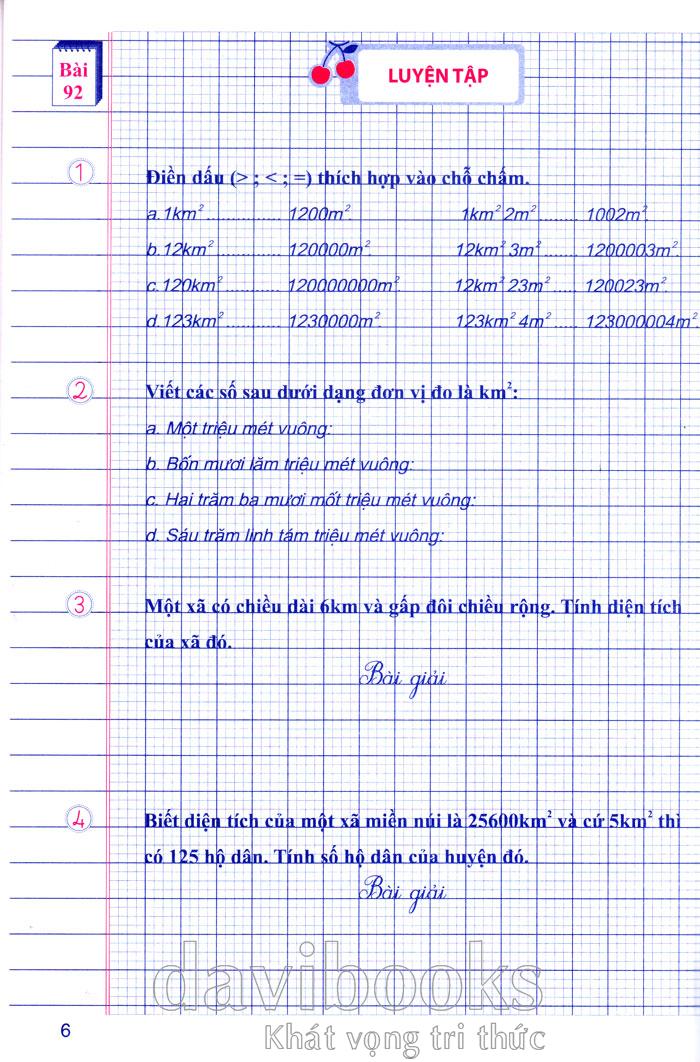 Bài
92
LUYỆN TẬP
1
Điền dấu (> ; < ; =) thích hợp vào chỗ chấm.
a. 1km² ............... 1200m². 1km² 2m² ........ 1002m².
b. 12km² ............... 120000m². 12km² 3m² ....... 1200003m².
c. 120km² ............ 120000000m². 12km² 23m² ..... 120023m².
d. 123km² ........... 1230000m². 123km² 4m² ..... 123000004m².
2
Viết các số sau dưới dạng đơn vị đo là km²:
a. Một triệu mét vuông:
b. Bốn mươi lăm triệu mét vuông:
c. Hai trăm ba mươi mốt triệu mét vuông:
d. Sáu trăm linh tám triệu mét vuông:
3
Một xã có chiều dài 6km và gấp đôi chiều rộng. Tính diện tích
của xã đó.
Bài giải
4
Biết diện tích của một xã miền núi là 25600km² và cứ 5km² thì
có 125 hộ dân. Tính số hộ dân của huyện đó.
Bài giải
davibooks
Khát vọng tri thức
6